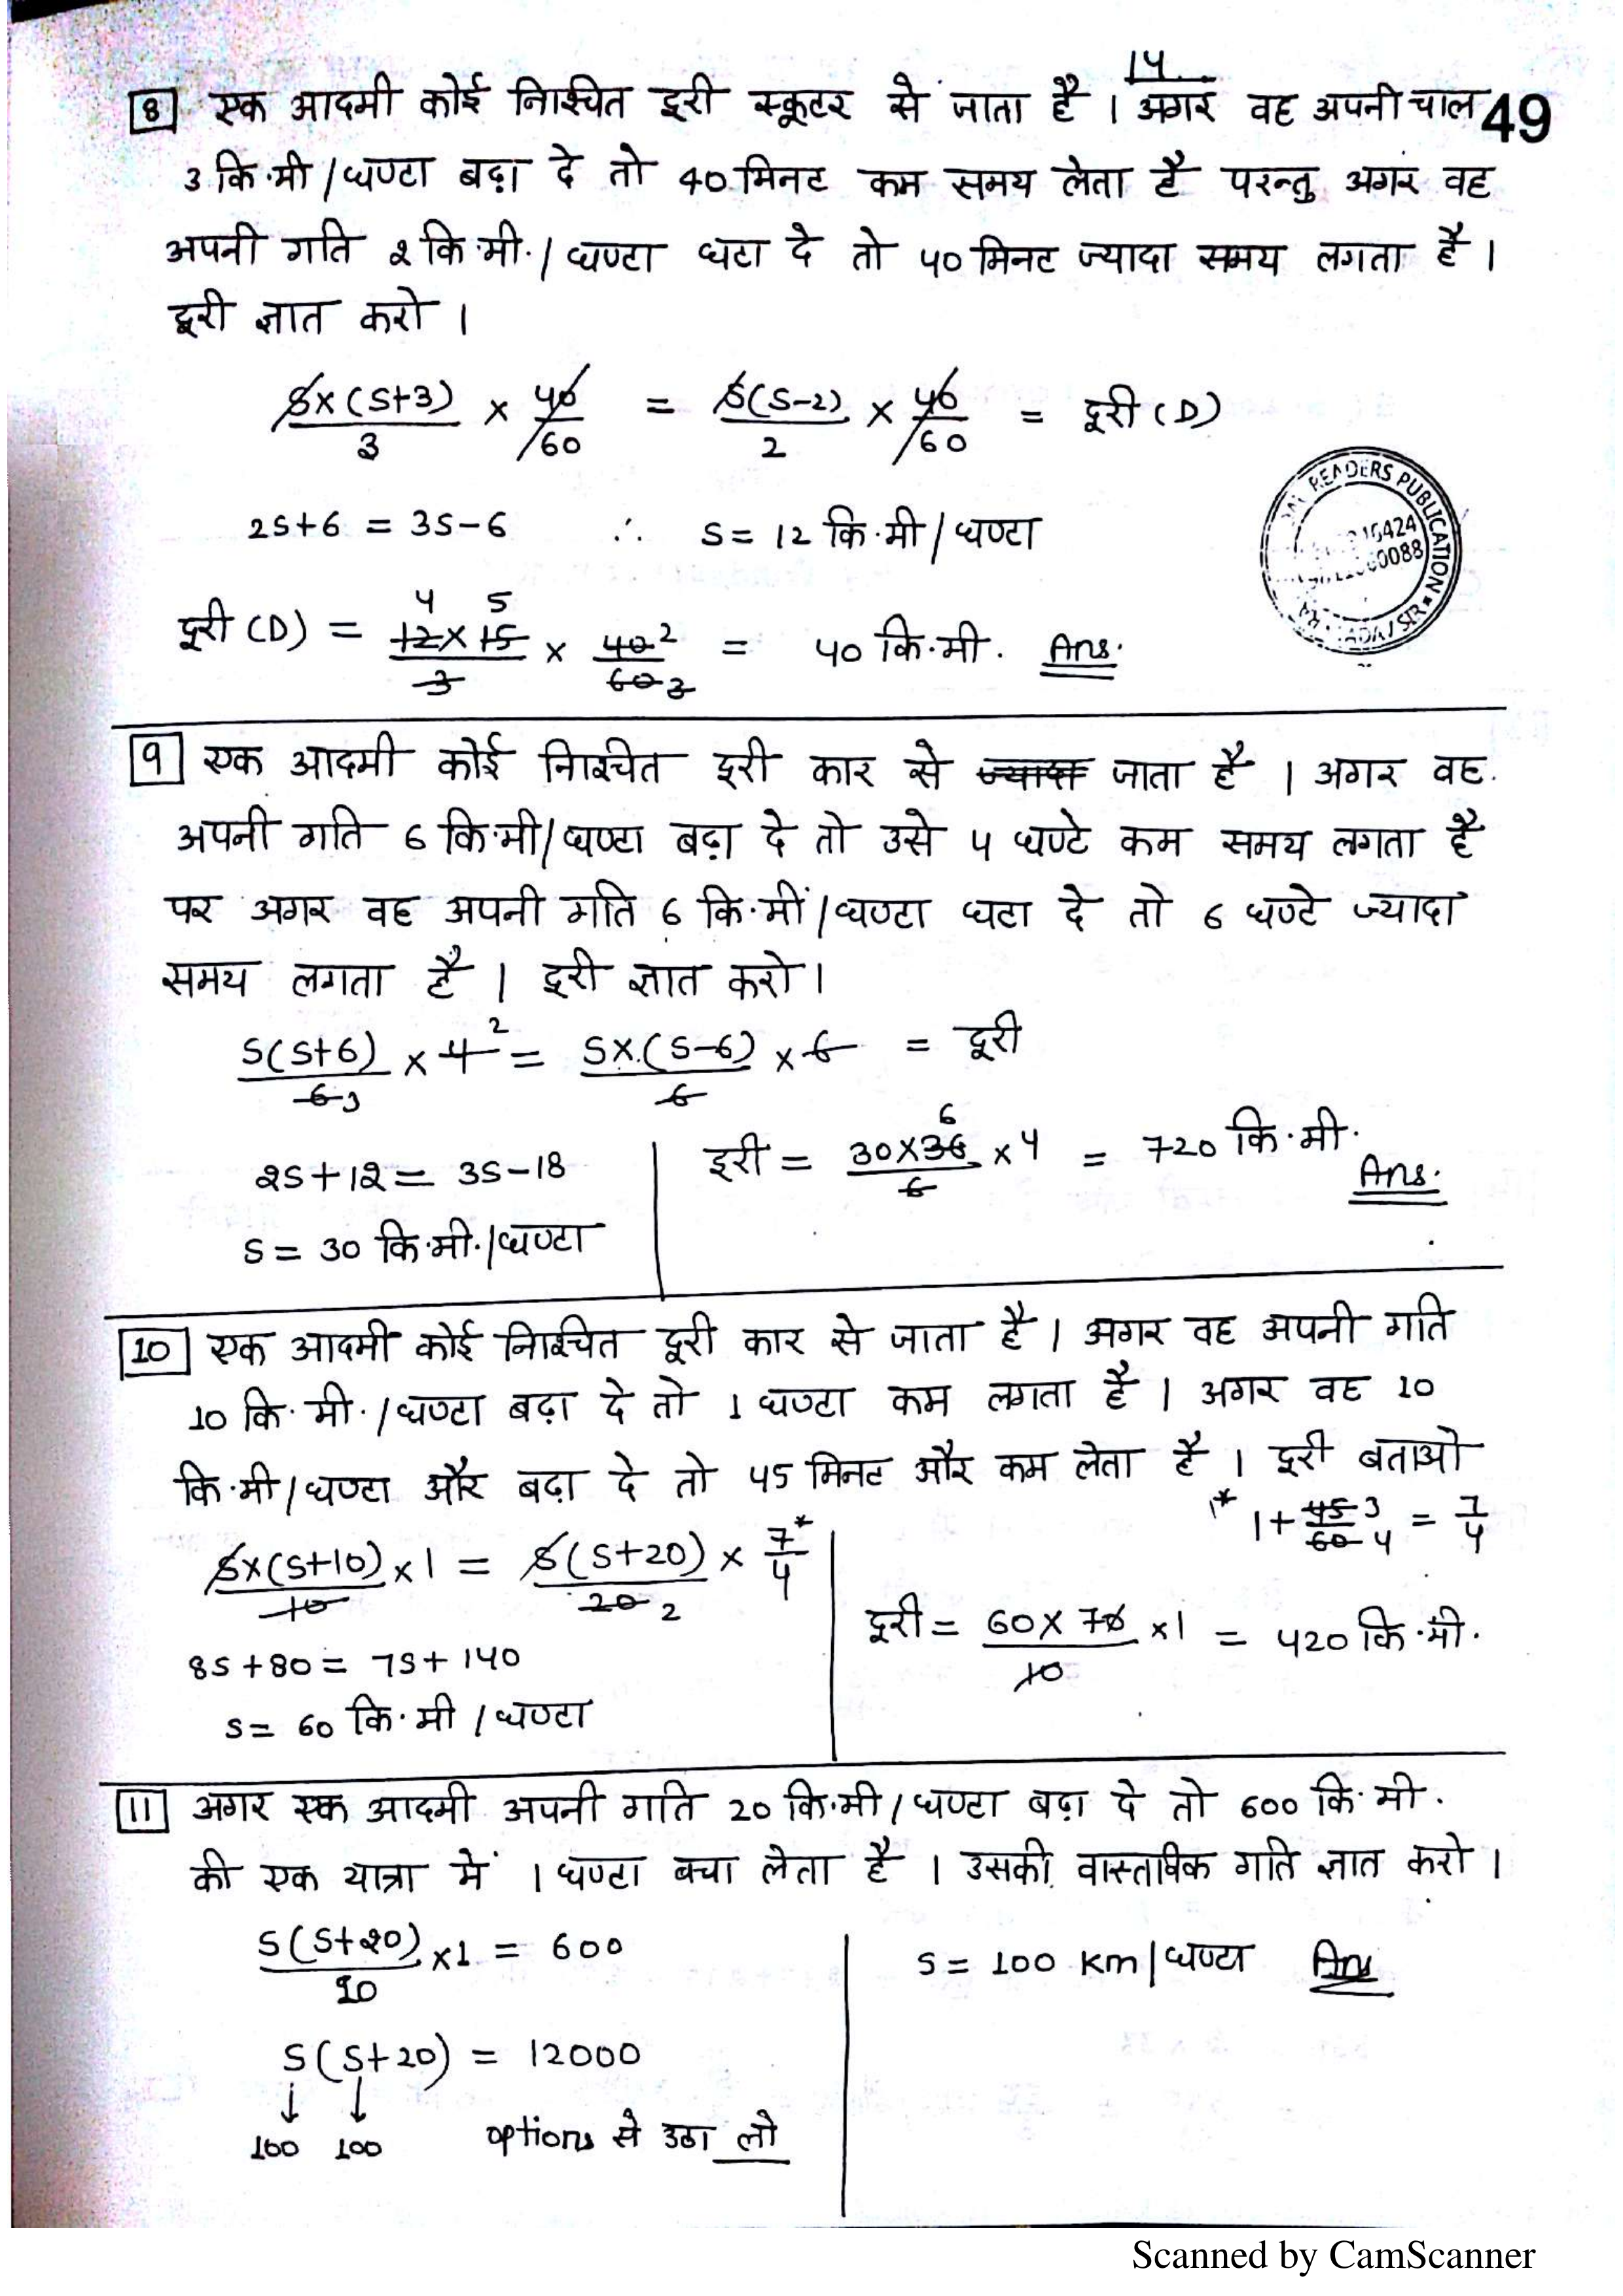 14
49
8 एक आदमी कोई निश्चित दूरी स्कूटर से जाता है । अगर वह अपनी चाल
3 कि.मी / घण्टा बढ़ा दे तो 40 मिनट कम समय लेता है परन्तु अगर वह
अपनी गति 2 कि.मी. / घण्टा घटा दे तो 40 मिनट ज्यादा समय लगता है ।
दूरी ज्ञात करो ।
S×(S+3)/3 × 40/60 = S(S-2)/2 × 40/60 = दूरी (D)
2S+6 = 3S-6 ∴ S = 12 कि.मी / घण्टा
READERS PUBLICATION
दूरी (D) = 12×15/3 × 40/60 = 40 कि.मी. Ans.
9 एक आदमी कोई निश्चित दूरी कार से ज्यादा जाता है । अगर वह
अपनी गति 6 कि.मी / घण्टा बढ़ा दे तो उसे 4 घण्टे कम समय लगता है
पर अगर वह अपनी गति 6 कि.मी / घण्टा घटा दे तो 6 घण्टे ज्यादा
समय लगता है । दूरी ज्ञात करो ।
S(S+6)/6 × 4 = S×(S-6)/6 × 6 = दूरी
2S+12 = 3S-18
S = 30 कि.मी. / घण्टा
दूरी = 30×36/6 × 4 = 720 कि.मी. Ans.
10 एक आदमी कोई निश्चित दूरी कार से जाता है । अगर वह अपनी गति
10 कि. मी. / घण्टा बढ़ा दे तो 1 घण्टा कम लगता है । अगर वह 10
कि.मी / घण्टा और बढ़ा दे तो 45 मिनट और कम लेता है । दूरी बताओ
* 1+45/60 = 7/4
S×(S+10)/10 ×1 = S(S+20)/20 × 7/4*
8S+80 = 7S+140
S = 60 कि.मी / घण्टा
दूरी = 60×70/10 ×1 = 420 कि.मी.
11 अगर एक आदमी अपनी गति 20 कि.मी / घण्टा बढ़ा दे तो 600 कि. मी.
की एक यात्रा में 1 घण्टा बचा लेता है । उसकी वास्तविक गति ज्ञात करो ।
S(S+20)/20 ×1 = 600
S(S+20) = 12000
↓ ↓
100 100 options से उठा लो
S = 100 Km / घण्टा Ans
Scanned by CamScanner